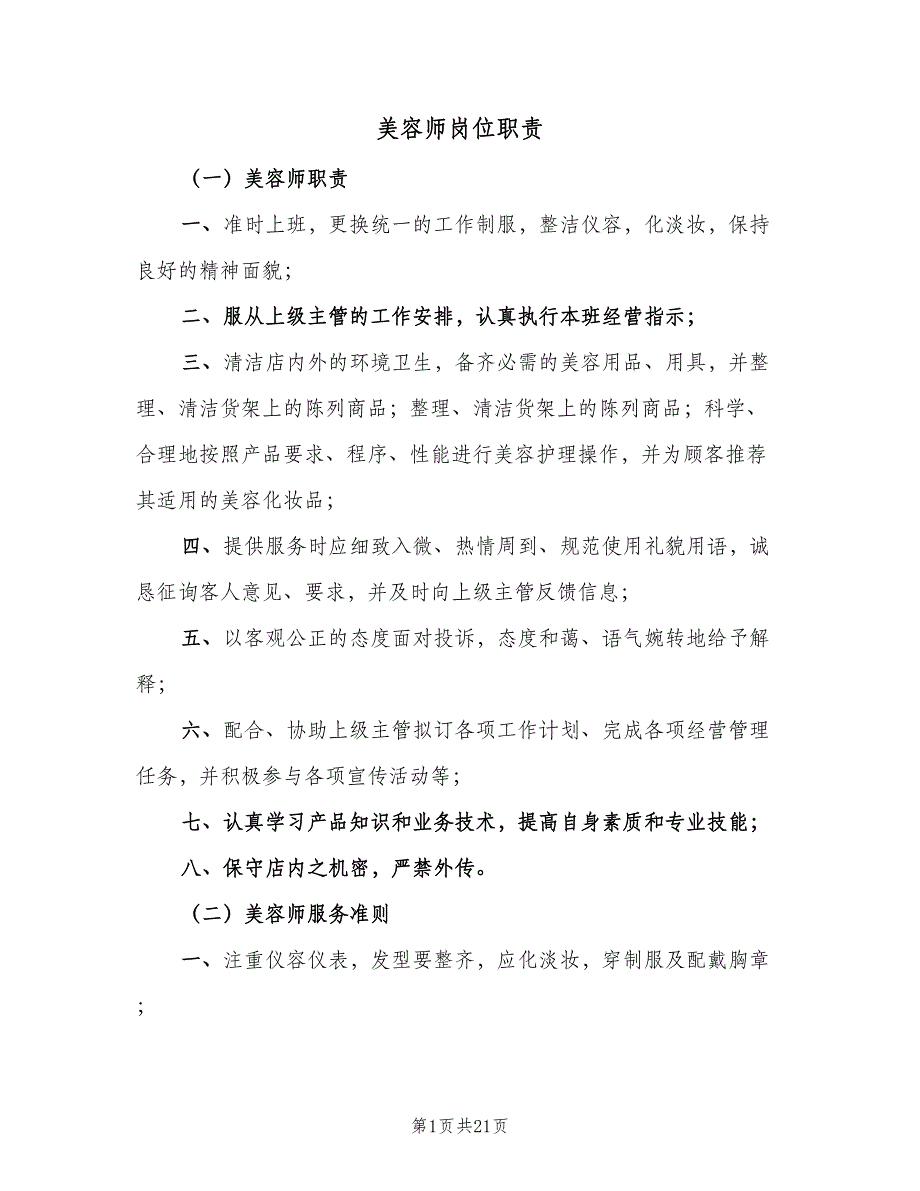 美容师岗位职责
（一）美容师职责
一、准时上班，更换统一的工作制服，整洁仪容，化淡妆，保持
良好的精神面貌；
二、服从上级主管的工作安排，认真执行本班经营指示；
三、清洁店内外的环境卫生，备齐必需的美容用品、用具，并整
理、清洁货架上的陈列商品；整理、清洁货架上的陈列商品；科学、
合理地按照产品要求、程序、性能进行美容护理操作，并为顾客推荐
其适用的美容化妆品；
四、提供服务时应细致入微、热情周到、规范使用礼貌用语，诚
恳征询客人意见、要求，并及时向上级主管反馈信息；
五、以客观公正的态度面对投诉，态度和蔼、语气婉转地给予解
释；
六、配合、协助上级主管拟订各项工作计划、完成各项经营管理
任务，并积极参与各项宣传活动等；
七、认真学习产品知识和业务技术，提高自身素质和专业技能；
八、保守店内之机密，严禁外传。
（二）美容师服务准则
一、注重仪容仪表，发型要整齐，应化淡妆，穿制服及配戴胸章
；
第1页共21页